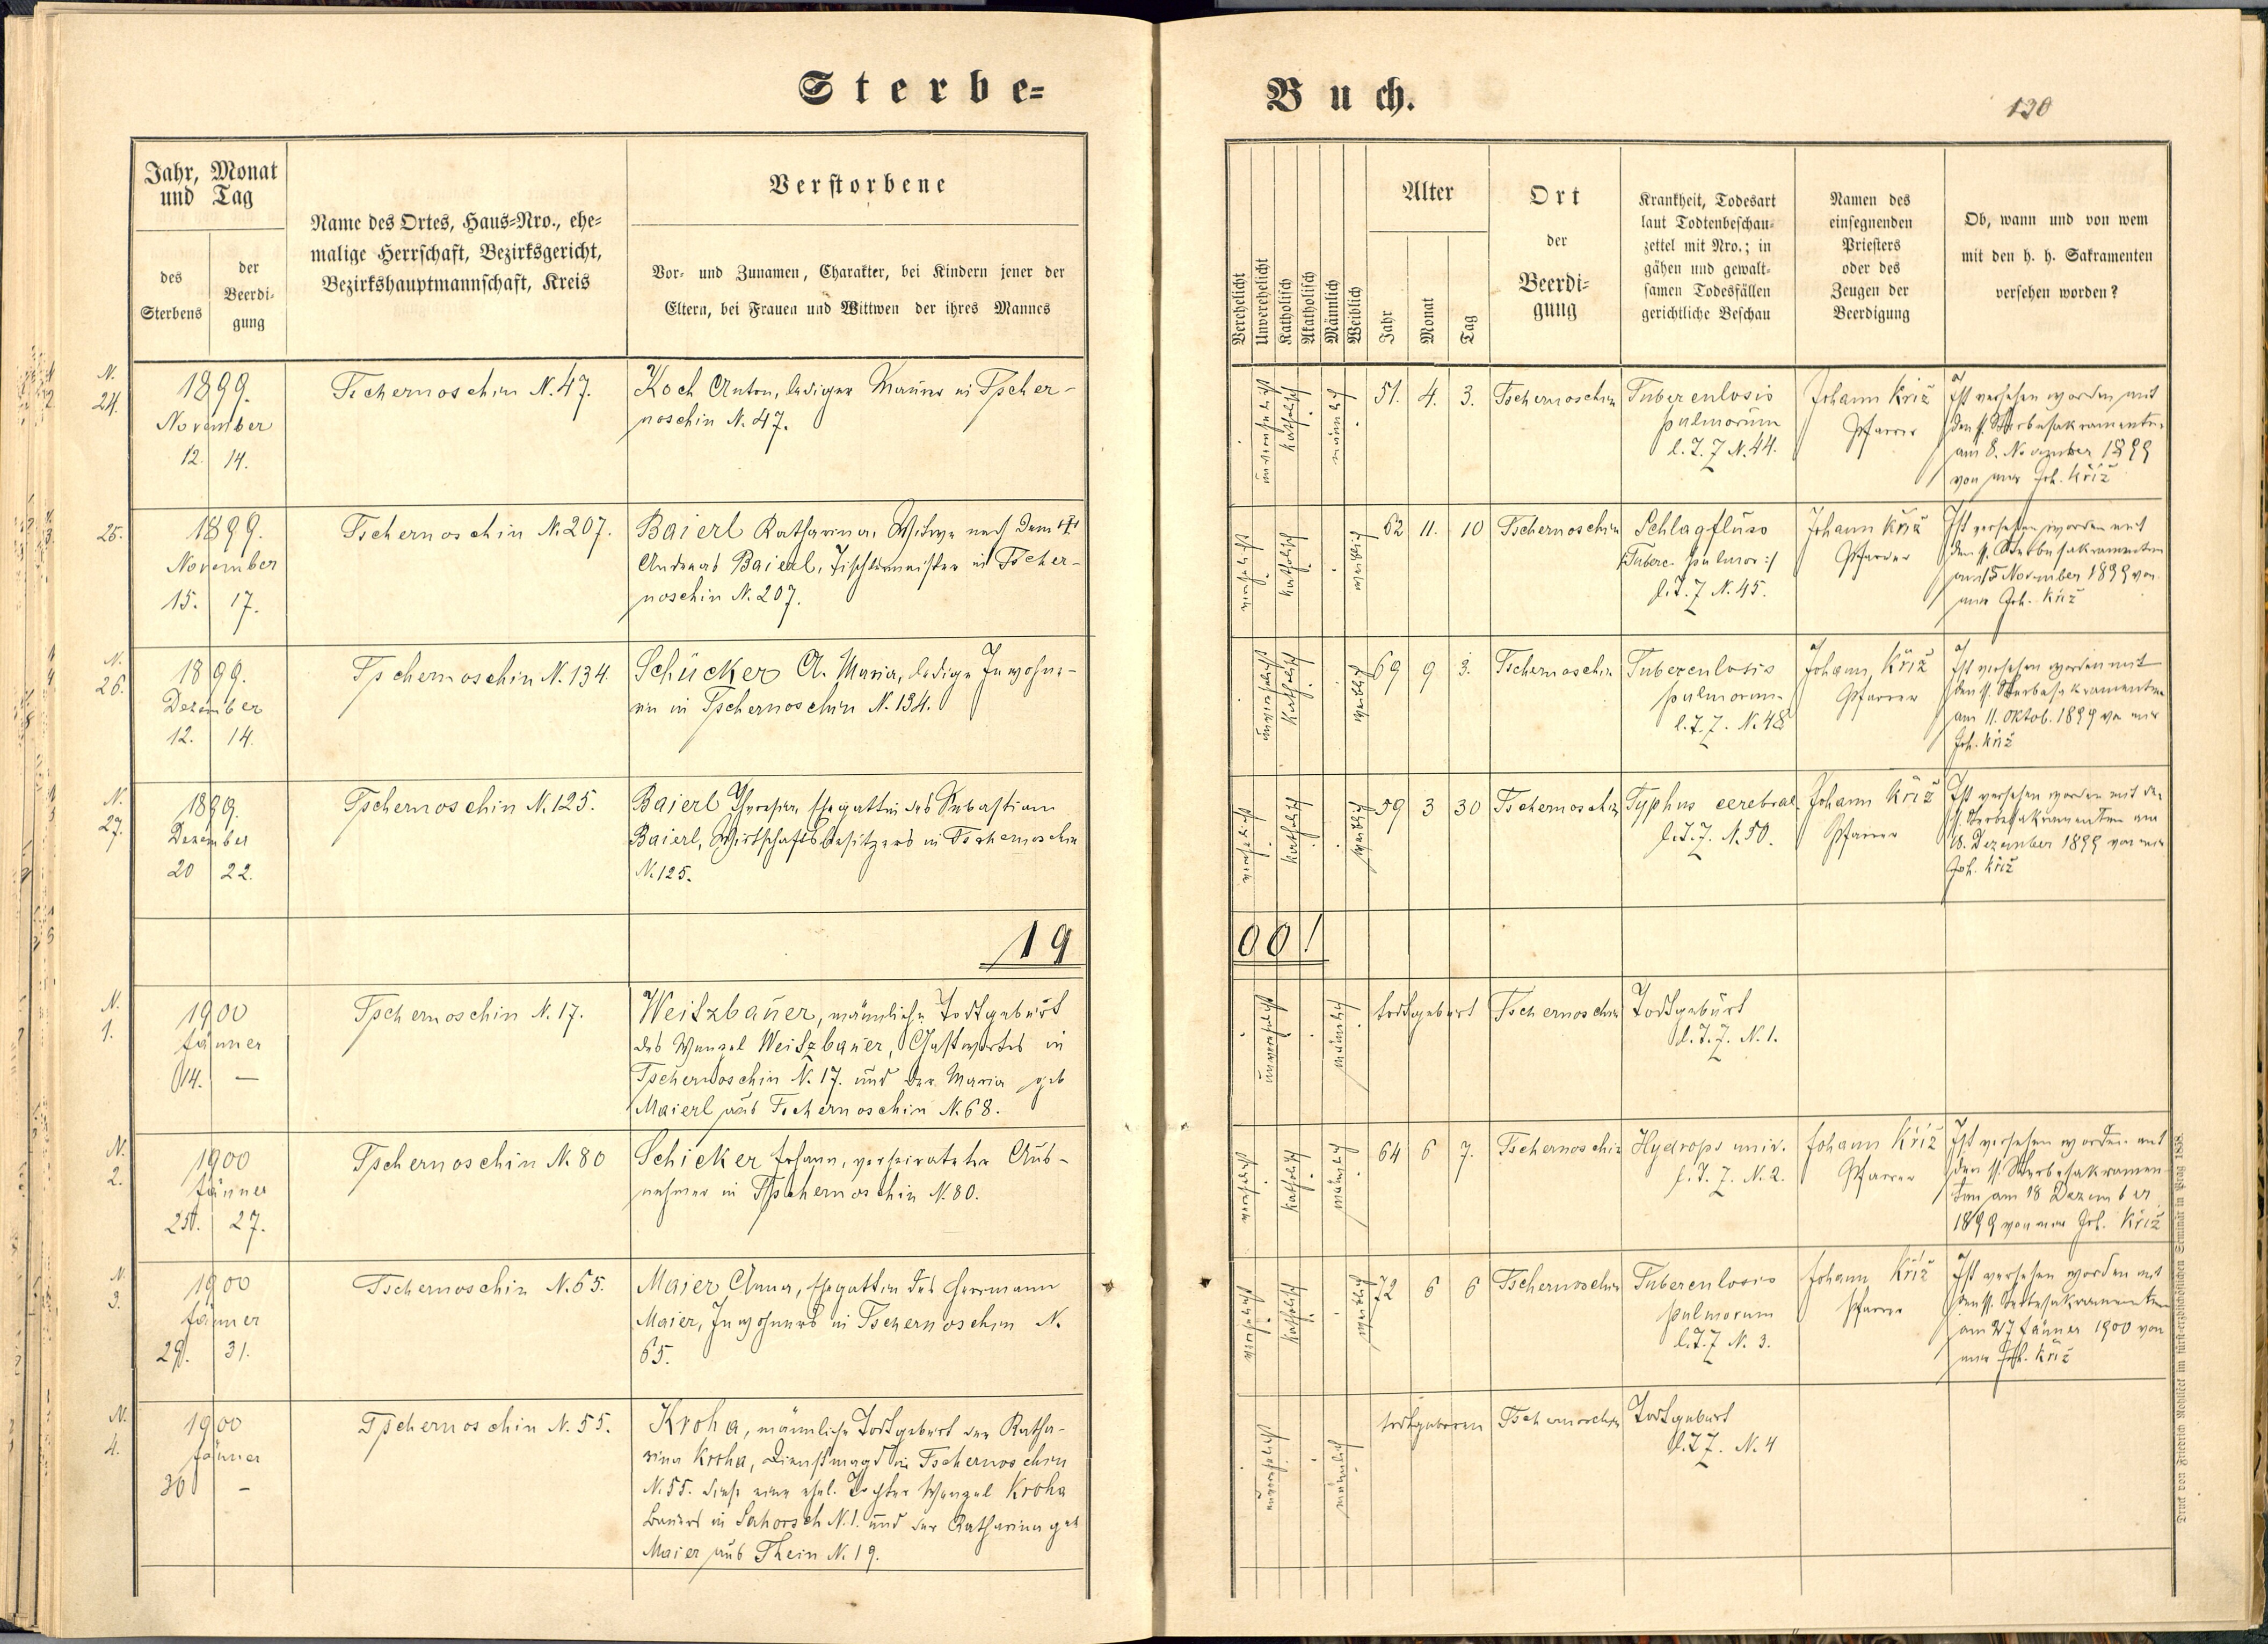 Sterbe=
Buch.
130
Jahr, Monat
und Tag
des
Sterbens
der
Beerdi=
gung
Name des Ortes, Haus=Nro., ehe=
malige Herrschaft, Bezirksgericht,
Bezirkshauptmannschaft, Kreis
Verstorbene
Vor= und Zunamen, Charakter, bei Kindern jener der
Eltern, bei Frauen und Wittwen der ihres Mannes
Verehelicht
Unverehelicht
Katholisch
Akatholisch
Männlich
Weiblich
Alter
Jahr
Monat
Tag
Ort
der
Beerdi=
gung
Krankheit, Todesart
laut Todtenbeschau=
zettel mit Nro.; in
gähen und gewalt=
samen Todesfällen
gerichtliche Beschau
Namen des
einsegnenden
Priesters
oder des
Zeugen der
Beerdigung
Ob, wann und von wem
mit den h. h. Sakramenten
versehen worden?
N.
24.
1899.
November
12. 14.
Tschernoschin N. 47.
Koch Anton, lediger Maurer in Tscher-
noschin N. 47.
unverehelicht
katholisch
männlich
51. 4. 3.
Tschernoschin
Tuberculosis
pulmorum
l. T. Z N. 44.
Johann Kříž
Pfarrer
Ist versehen worden mit
den hl. Sterbesakramenten
am 8. November 1899
von mir Joh. Kříž
25.
1899.
November
15. 17.
Tschernoschin N. 207.
Baierl Katharina, Witwe nach dem
Andreas Baierl, Tischlermeister in Tscher-
noschin N. 207.
verehelicht
katholisch
weiblich
62 11. 10
Tschernoschin
Schlagfluss
/: Tuberc. pulmor :/
l. T. Z N. 45.
Johann Kříž
Pfarrer
Ist versehen worden mit
den hl. Sterbesakramenten
am 15 November 1899 von
mir Joh. Kříž
N.
26.
1899.
Dezember
12. 14.
Tschernoschin N. 134
Schücker A. Maria, ledige Inwohne-
rin in Tschernoschin N. 134.
unverehelicht
katholisch
weiblich
69 9 3.
Tschernoschin
Tuberculosis
pulmorum
l. T. Z. N. 48
Johann Kříž
Pfarrer
Ist versehen worden mit
den hl. Sterbesakramenten
am 11. Oktob. 1899 von mir
Joh. Kříž
N.
27.
1899.
Dezember
20 22.
Tschernoschin N. 125.
Baierl Theresia, Ehegattin des Sebastian
Baierl, Wirtschaftsbesitzers in Tschernoschin
N. 125.
verehelicht
katholisch
weiblich
59 3 30
Tschernoschin
Typhus cerebral.
l. T. Z. N. 50.
Johann Kříž
Pfarrer
Ist versehen worden mit den
hl. Sterbesakramenten am
18. Dezember 1899 von mir
Joh. Kříž
1900!
N.
1.
1900
Jänner
14. —
Tschernoschin N. 17.
Weitzbauer, männliche Todtgeburt
des Wenzel Weitzbauer, Gastwirtes in
Tschernoschin N. 17. und der Maria geb
Maierl aus Tschernoschin N. 68.
unverehelicht
männlich
todtgeburt
Tschernoschin
Todtgeburt
l. T. Z. N. 1.
N.
2.
1900
Jänner
25. 27.
Tschernoschin N. 80
Schicker Johann, verheirateter Aus-
nehmer in Tschernoschin N. 80.
verehelicht
katholisch
männlich
64 6 7.
Tschernoschin
Hydrops univ.
l. T. Z. N. 2.
Johann Kříž
Pfarrer
Ist versehen worden mit
den hl. Sterbesakramen-
ten am 18 Dezember
1899 von mir Joh. Kříž
N.
3.
1900
Jänner
29. 31.
Tschernoschin N. 65.
Maier Anna, Ehegattin des Herrmann
Maier, Inwohners in Tschernoschin N.
65.
verehelicht
katholisch
weiblich
72 6 6
Tschernoschin
Tuberculosis
pulmorum
l. T. Z N. 3.
Johann Kříž
Pfarrer
Ist versehen worden mit
den hl. Sterbesakramenten
am 27 Jänner 1900 von
mir Joh. Kříž
N.
4.
1900
Jänner
30 —
Tschernoschin N. 55.
Kroha, männliche Todtgeburt der Katha-
rina Kroha, Dienstmagd in Tschernoschin
N. 55. diese eine ehel. Tochter Wenzel Kroha
Bauers in Sahorsch N. 1. und der Katharina geb
Maier aus Thein N. 19.
unverehelicht
männlich
todtgeboren
Tschernoschin
Todtgeburt
l. T. Z. N. 4
Druck von Friedrich Rohliček im fürst=erzbischöflichen Seminär in Prag 1858.